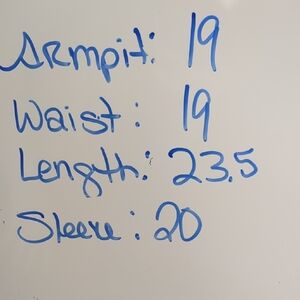 Armpit: 19
Waist: 19
Length: 23.5
Sleeve: 20